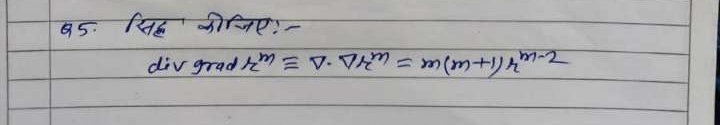 Q5. सिद्ध कीजिए:-
div grad r^m ≡ ∇·∇r^m = m(m+1) r^{m-2}